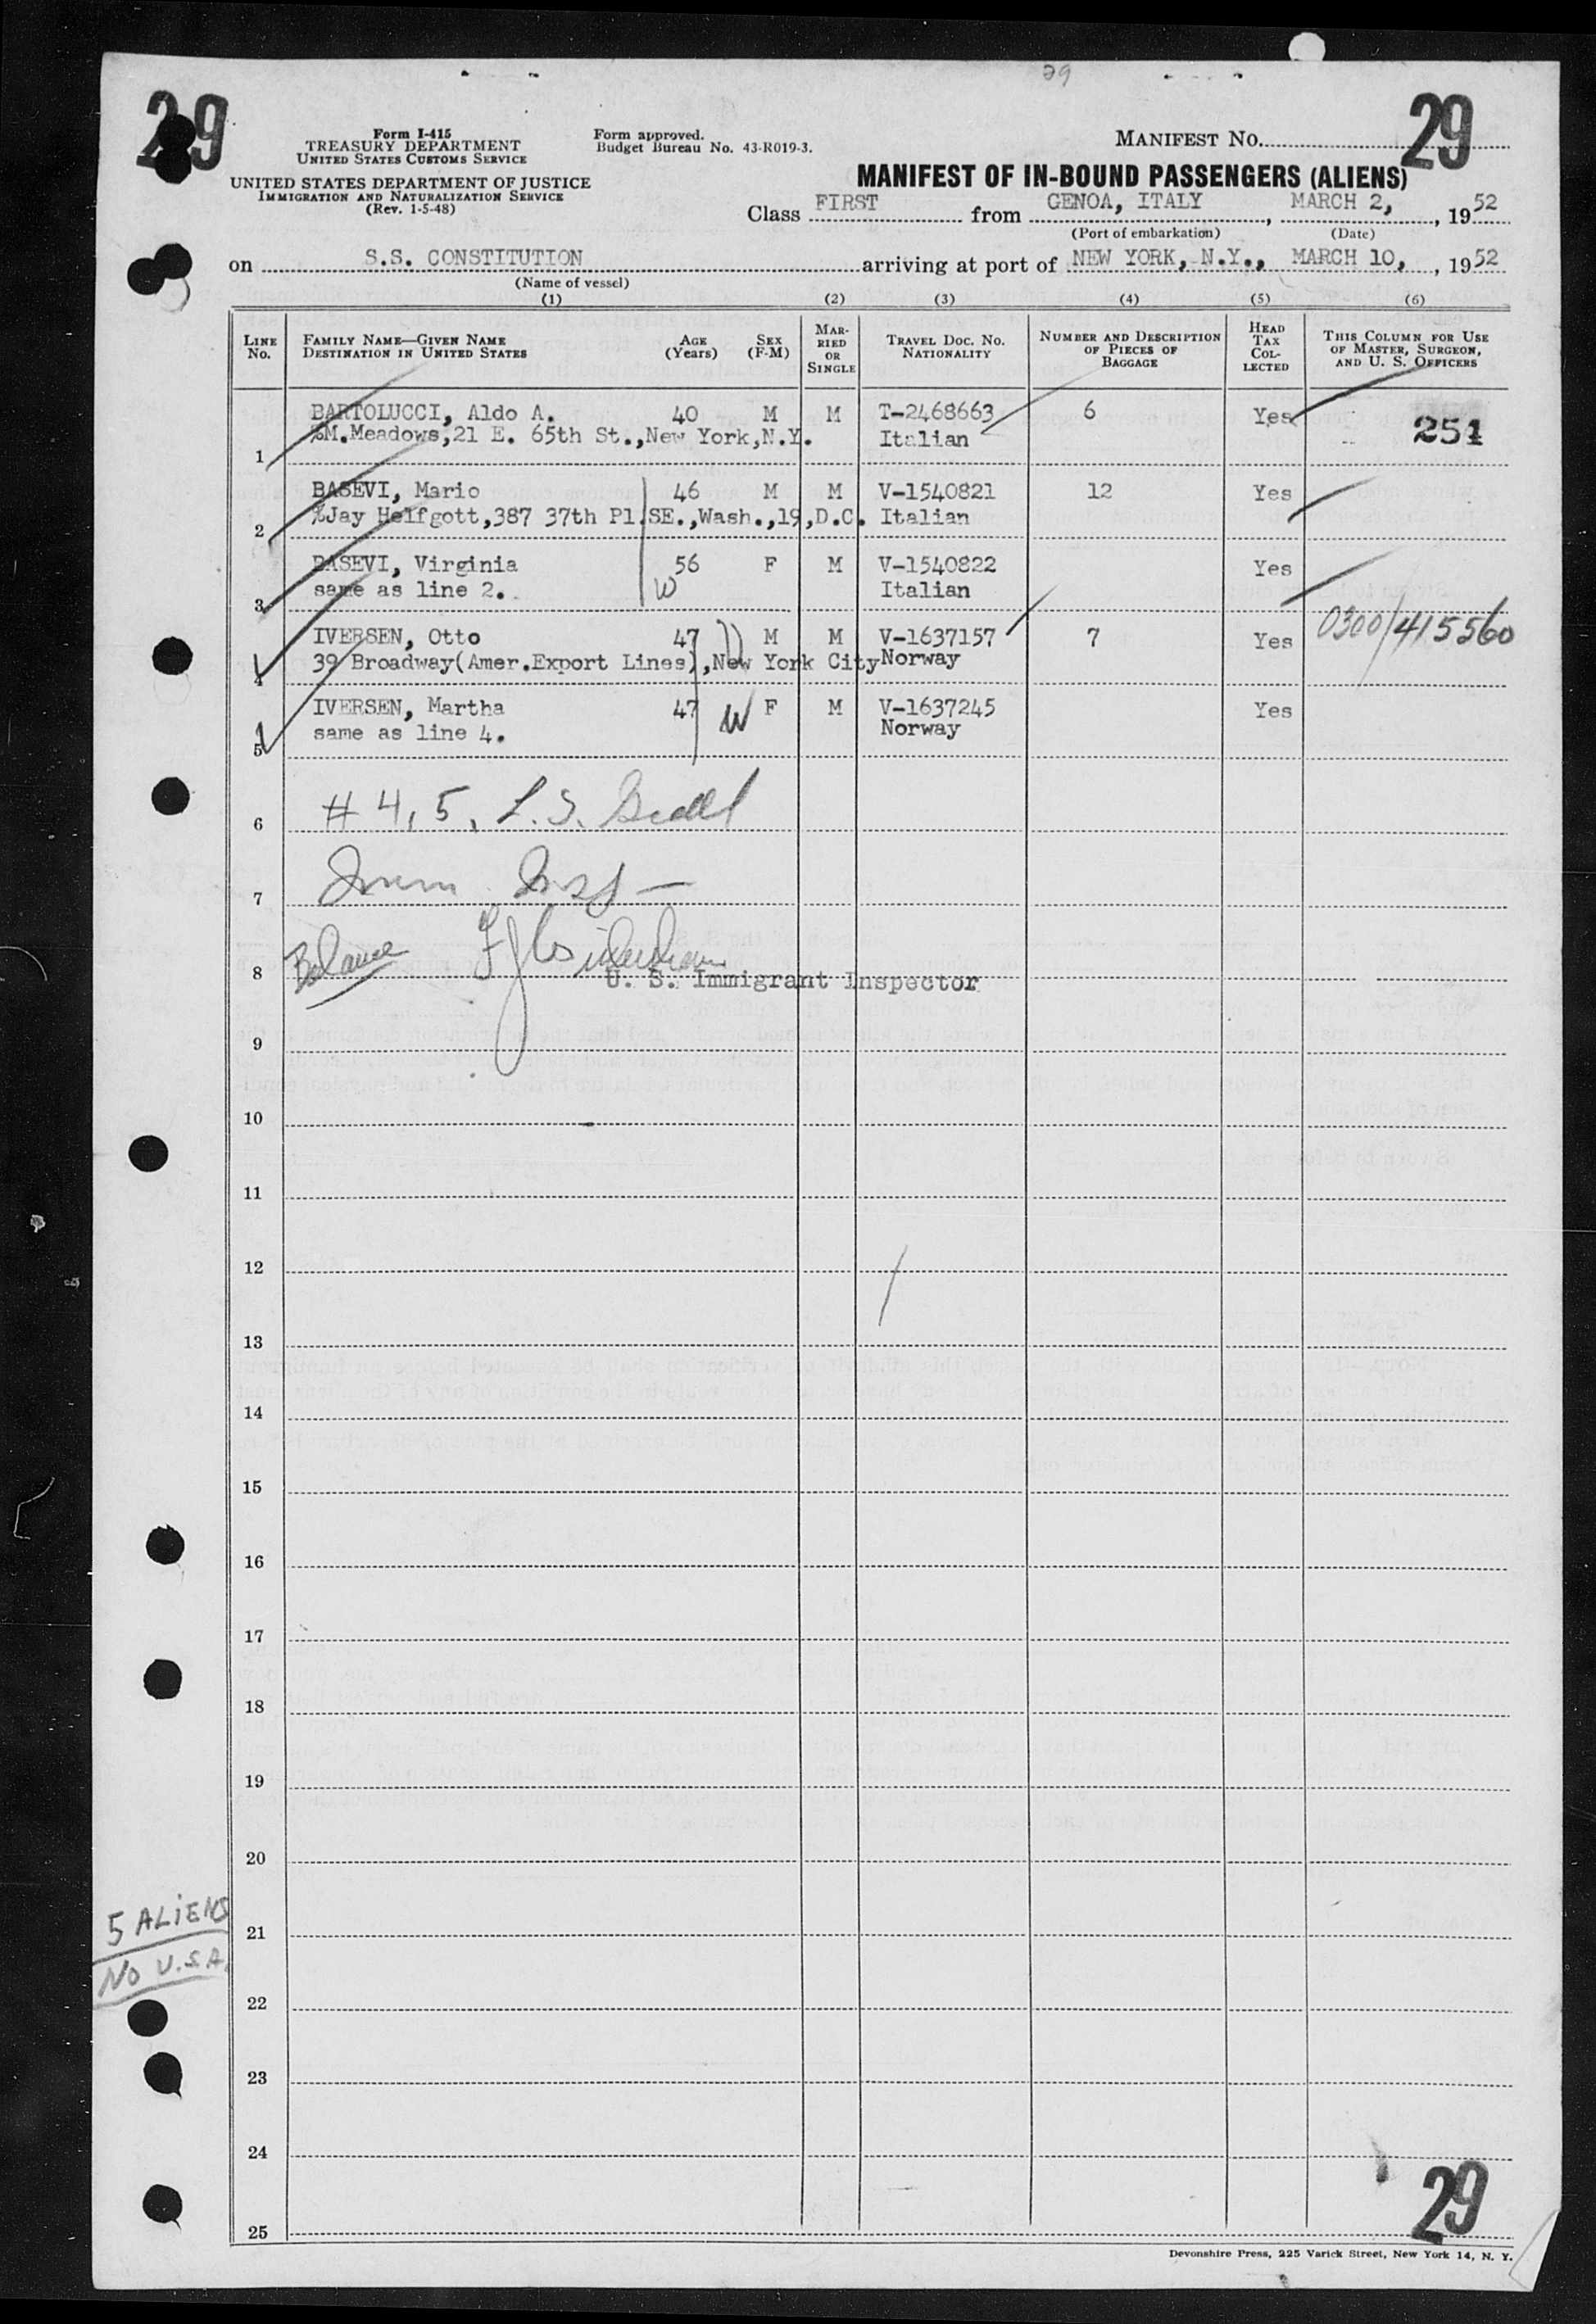 29
29
29
Form I-415
TREASURY DEPARTMENT
UNITED STATES CUSTOMS SERVICE
UNITED STATES DEPARTMENT OF JUSTICE
IMMIGRATION AND NATURALIZATION SERVICE
(Rev. 1-5-48)
Form approved.
Budget Bureau No. 43-R019-3.
MANIFEST NO.
MANIFEST OF IN-BOUND PASSENGERS (ALIENS)
Class FIRST from GENOA, ITALY, MARCH 2, , 1952
(Port of embarkation) (Date)
on S.S. CONSTITUTION arriving at port of NEW YORK, N.Y., MARCH 10, , 1952
(Name of vessel)
(1) (2) (3) (4) (5) (6)
LINE No. FAMILY NAME—GIVEN NAME DESTINATION IN UNITED STATES AGE (Years) SEX (F-M) MARRIED OR SINGLE TRAVEL DOC. NO. NATIONALITY NUMBER AND DESCRIPTION OF PIECES OF BAGGAGE HEAD TAX COLLECTED THIS COLUMN FOR USE OF MASTER, SURGEON, AND U. S. OFFICERS
BARTOLUCCI, Aldo A. 40 M M T-2468663 6 Yes 251
1 %M.Meadows,21 E. 65th St.,New York,N.Y. Italian
BASEVI, Mario 46 M M V-1540821 12 Yes
2 %Jay Helfgott,387 37th Pl.SE.,Wash.,19,D.C. Italian
BASEVI, Virginia 56 F M V-1540822 Yes
3 same as line 2. W Italian
IVERSEN, Otto 47 M M V-1637157 7 Yes 0300/415560
4 39 Broadway(Amer.Export Lines),New York City Norway
IVERSEN, Martha 47 W F M V-1637245 Yes
5 same as line 4. Norway
6 # 4, 5, L. S.
7 Imm. Insp —
8 Balance
U. S. Immigrant Inspector
9
10
11
12
13
14
15
16
17
18
19
20
5 ALIENS
21
NO U.S.A.
22
23
24
29
25
Devonshire Press, 225 Varick Street, New York 14, N. Y.